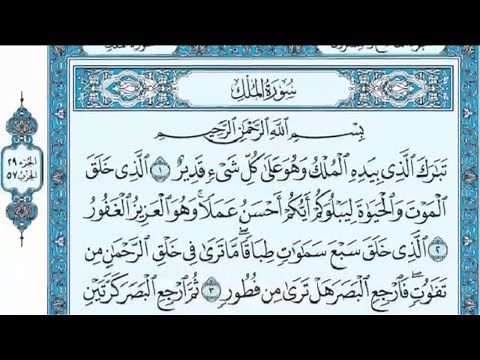 سُورَةُ المُلْكِ
بِسْمِ اللَّهِ الرَّحْمَٰنِ الرَّحِيمِ
تَبَٰرَكَ ٱلَّذِى بِيَدِهِ ٱلْمُلْكُ وَهُوَ عَلَىٰ كُلِّ شَىْءٍ قَدِيرٌ ١ ٱلَّذِى خَلَقَ
ٱلْمَوْتَ وَٱلْحَيَوٰةَ لِيَبْلُوَكُمْ أَيُّكُمْ أَحْسَنُ عَمَلًا ۚ وَهُوَ ٱلْعَزِيزُ ٱلْغَفُورُ
٢ ٱلَّذِى خَلَقَ سَبْعَ سَمَٰوَٰتٍ طِبَاقًا ۖ مَّا تَرَىٰ فِى خَلْقِ ٱلرَّحْمَٰنِ مِن
تَفَٰوُتٍ ۖ فَٱرْجِعِ ٱلْبَصَرَ هَلْ تَرَىٰ مِن فُطُورٍ ٣ ثُمَّ ٱرْجِعِ ٱلْبَصَرَ كَرَّتَيْنِ
الجزء ٢٩
الحزب ٥٧